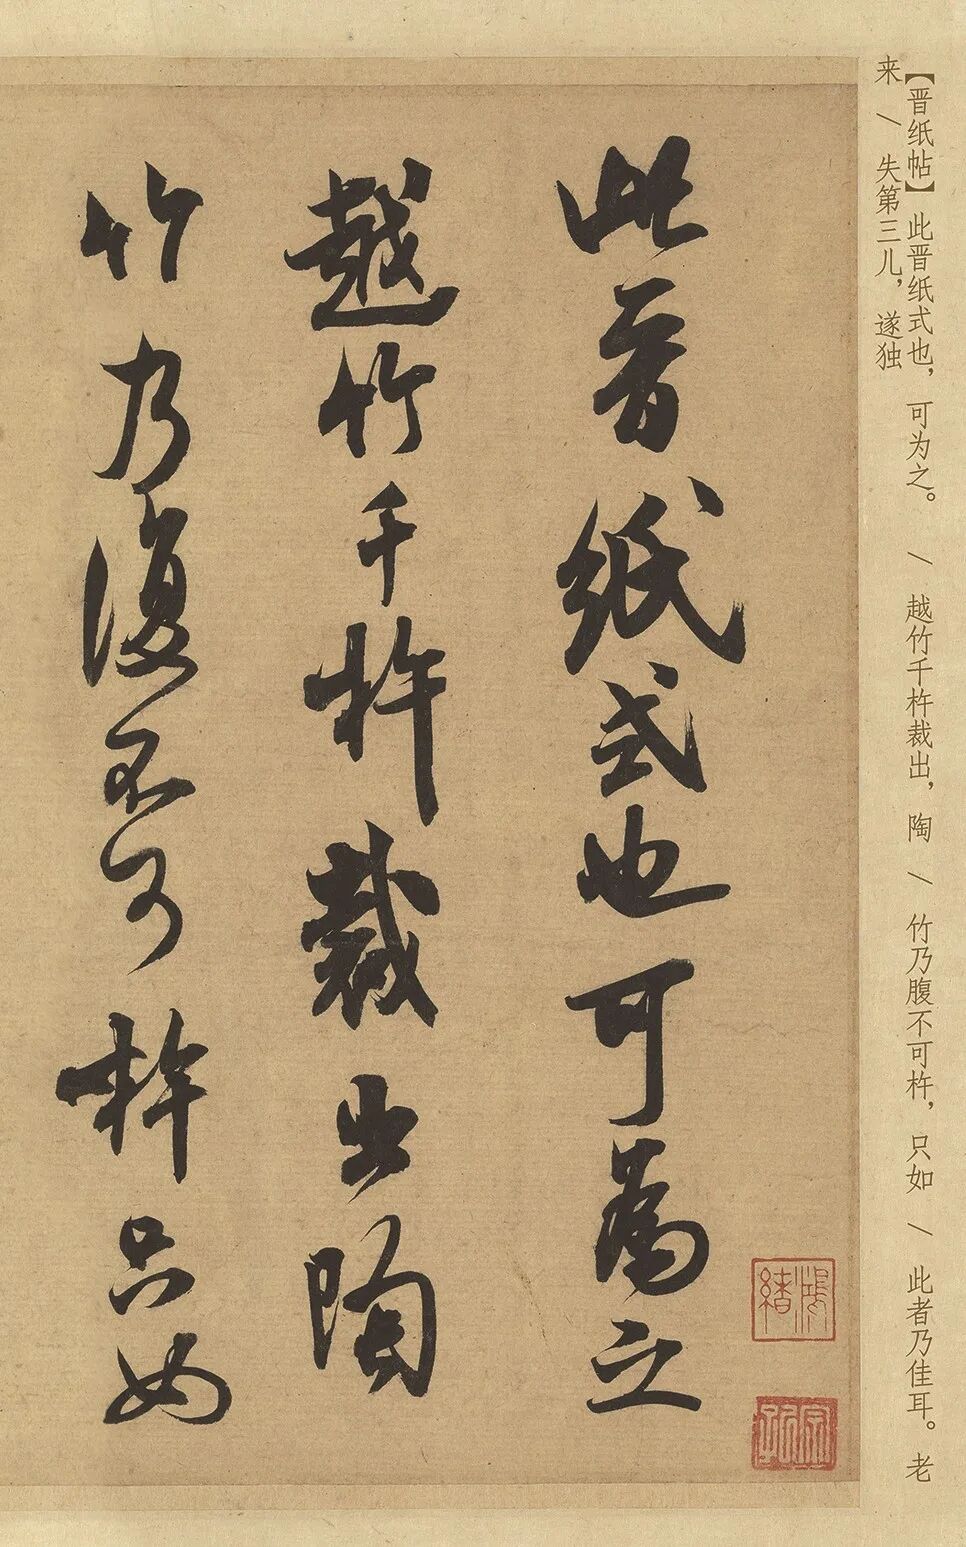 【晋纸帖】此晋纸式也，可为之。\ 越竹千杵裁出，陶 \ 竹乃腹不可杵，只如 \ 此者乃佳耳。老
来 \ 失第三儿，遂独
此晉紙式也可為之
越竹千杵裁出陶
竹乃復不可杵只如